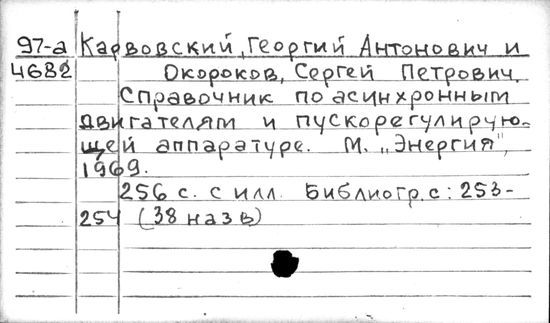 97-а Карвовский, Георгий Антонович и
4682 Окороков, Сергей Петрович.
Справочник по асинхронным
двигателям и пускорегулирую-
щей аппаратуре. М. „Энергия",
1969.
256 с. с илл. Библиогр. с: 253-
254 (38 назв)